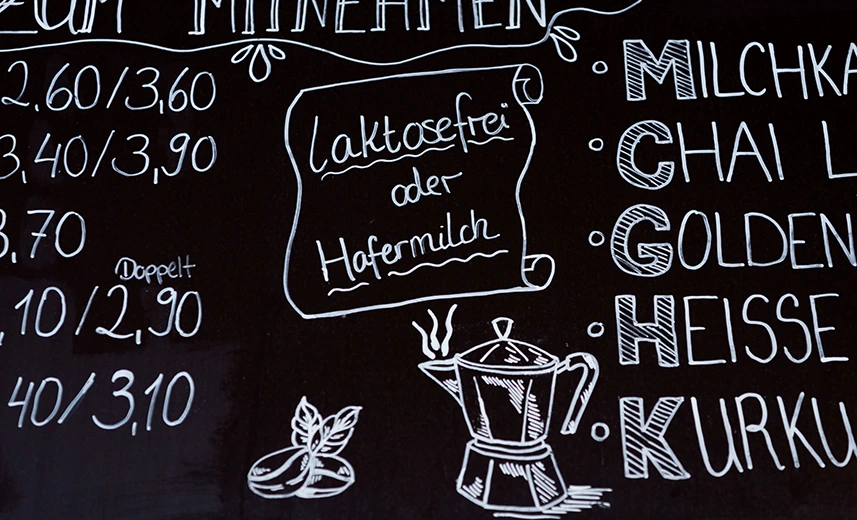 ZUM MITNEHMEN
2,60/3,60
3,40/3,90
3,70
Doppelt
,10/2,90
40/3,10
Laktosefrei
oder
Hafermilch
• MILCHKA
• CHAI L
• GOLDEN
• HEISSE
• KURKU